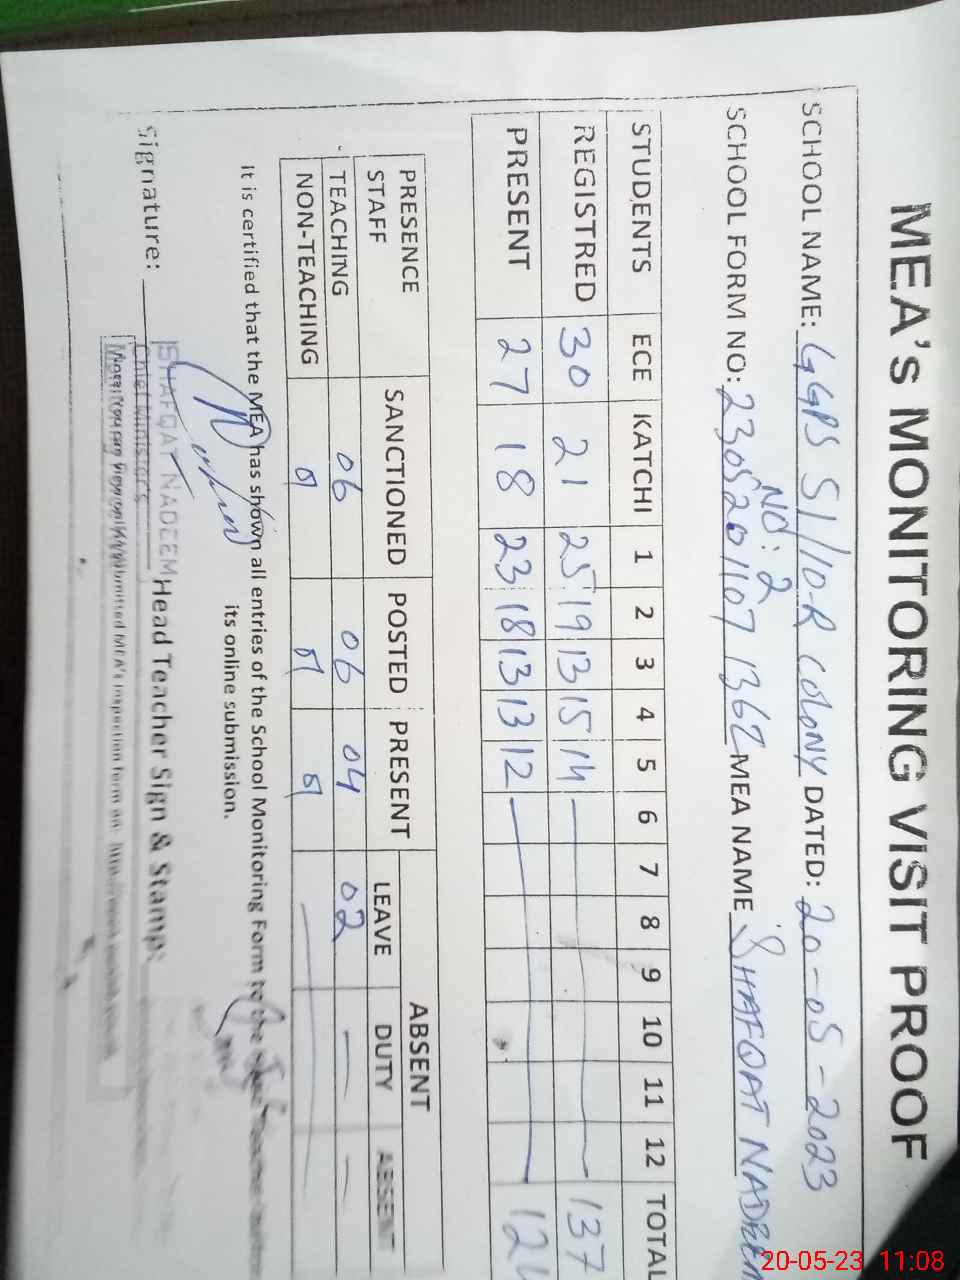 MEA's MONITORING VISIT PROOF
SCHOOL NAME: GGPS 51/10-R COLONY DATED: 20-05-2023
NO: 2
SCHOOL FORM NO: 2305201107 1362 MEA NAME SHAFQAT NADEEM
STUDENTS ECE KATCHI 1 2 3 4 5 6 7 8 9 10 11 12 TOTAL
REGISTRED 30 21 25 19 13 15 14 137
PRESENT 27 18 23 18 13 13 12
PRESENCE STAFF SANCTIONED POSTED PRESENT ABSENT
LEAVE DUTY ABSENT
TEACHING 06 06 04 02 — —
NON-TEACHING
It is certified that the MEA has shown all entries of the School Monitoring Form to the
its online submission.
SHAFQAT NADEEM
Signature: Head Teacher Sign & Stamp:
Chief Minister's
submitted MEA's inspection form on:
20-05-23 11:08